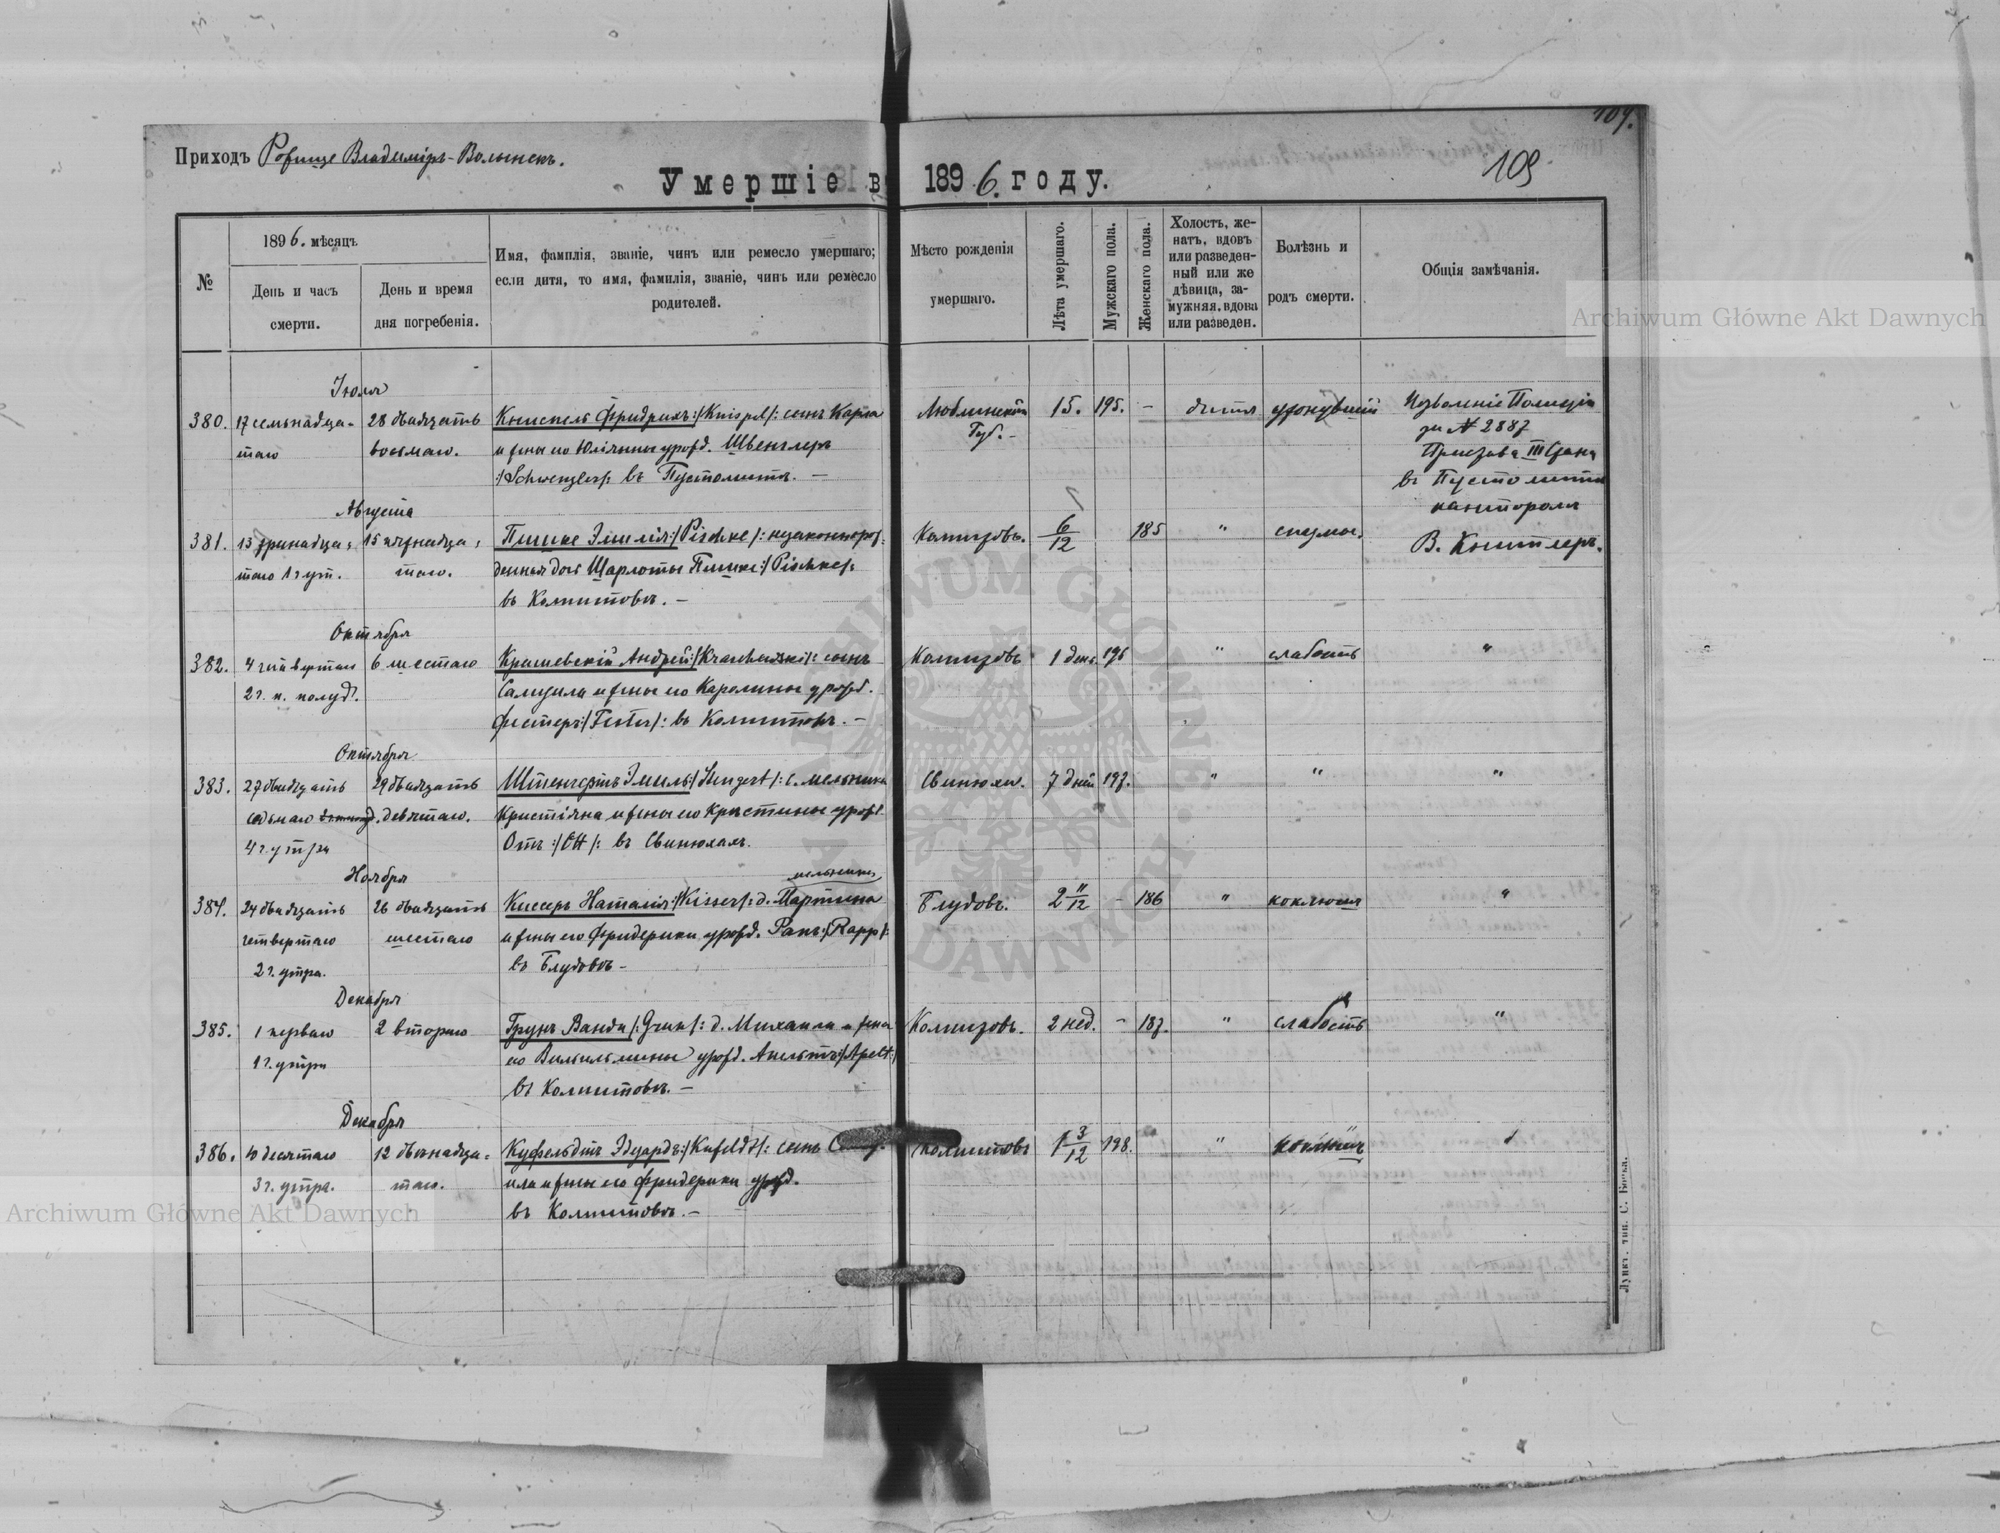 Приходъ Рожище Владиміръ-Волынскъ.
104.
109.
Умершіе в 1896. году.
№
1896. мѣсяцъ
День и часъ смерти.
День и время дня погребенія.
Имя, фамилія, званіе, чинъ или ремесло умершаго;
если дитя, то имя, фамилія, званіе, чинъ или ремесло
родителей.
Мѣсто рожденія
умершаго.
Лѣта умершаго.
Мужскаго пола.
Женскаго пола.
Холостъ, же-
натъ, вдовъ
или разведен-
ный или же
дѣвица, за-
мужняя, вдова
или разведен.
Болѣзнь и
родъ смерти.
Общія замѣчанія.
Archiwum Główne Akt Dawnych
Іюля
380. 17 семьнадца- 28 двадцать Книспель Фридрихъ :/Knispel/: сынъ Карла Люблинской 15. 195. - дитя утонувшій Позволеніе Полиціи
таго восьмаго. и жены его Юліанны урожд. Швенглеръ Губ.- за № 2887
:/Schwengler/: въ Пустомытъ. — Пристава III Стана
въ Пустомыти
Августа канторомъ
381. 13 тринадца- 15 пятнадца- Пишке Эмилія :/Pischke/: незаконнорож- Копытовъ. 6/12 185 " спазмы. В. Книтлеръ.
таго 1 ч ут. таго. денная дочь Шарлоты Пишке :/Pischke/:
въ Копытовъ. —
Октября
382. 4 четвертаго 6 шестаго Крашевскій Андрей :/Kraschewski/: сынъ Копытовъ 1 день 196 " слабость "
2 ч. п. полуд. Самуила и жены его Каролины урожд.
Фестеръ :/Fester/: въ Копытовъ. —
Октября
383. 27 двадцать 29 двадцать Штенгертъ Эмиль :/Stengert/: с. мельника Свинюхи. 7 дней 197. " " "
седьмаго девятаго. Кристіяна и жены его Кристины урожд.
4 ч. утра Отъ :/Ott/: въ Свинюхахъ.
Ноября мельника
384. 24 двадцать 26 двадцать Киссеръ Наталія :/Kisser/: д. Мартина Блудовъ. 2 11/12 - 186 " коклюшя "
четвертаго шестаго и жены его Фридерики урожд. Рапъ :/Rapp/:
2 ч. утра. въ Блудовъ -
Декабря
385. 1 перваго 2 втораго Грунъ Ванда /:Grun/: д. Михаила и жены Копытовъ. 2 нед. - 187. " слабость "
1 ч. утра его Вильгельмины урожд. Апельтъ :/Apelt:/
въ Копытовъ. —
Декабря
386. 10 десятаго 12 двѣнадца- Куфельдтъ Эдуардъ :/Kufeldt/: сынъ Копытовъ 1 3/12 198. " коклюшъ
3 ч. утра. таго. ила и жены его Фридерики урожд.
въ Копытовъ. —
Archiwum Główne Akt Dawnych
ARCHIWUM GŁÓWNE AKT DAWNYCH
Луцкъ, тип. С. Бокъл.